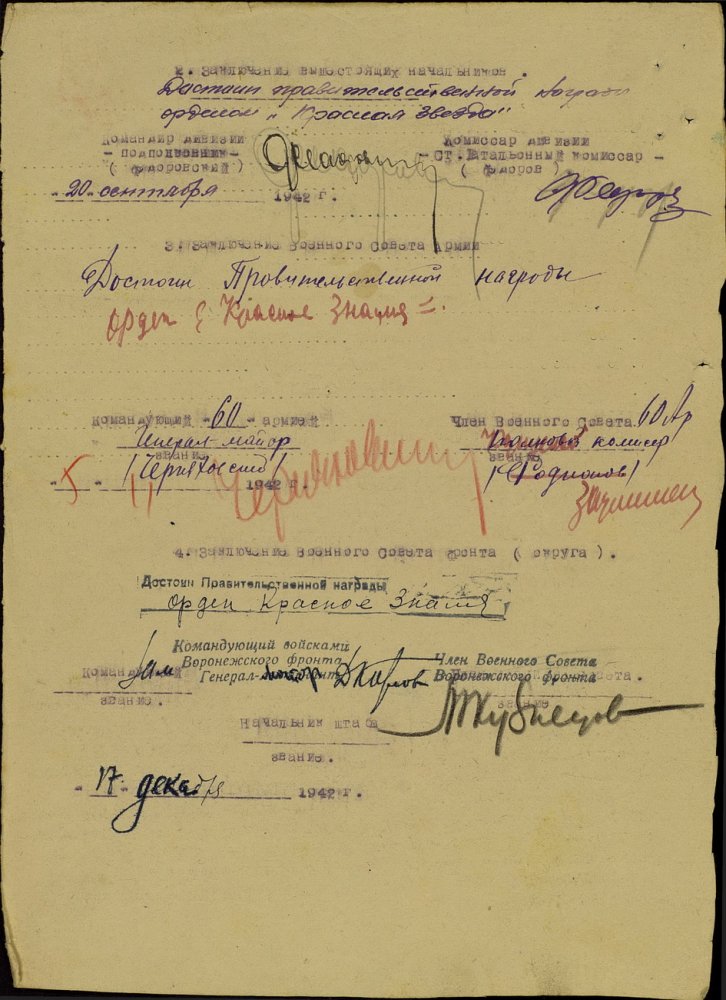 2. Заключение вышестоящих начальников.
Достоин правительственной награды
орденом „Красная Звезда"
Командир дивизии Комиссар дивизии
- подполковник - - Ст. батальонный комиссар -
( Федоровский ) ( Федоров )
"20" сентября 1942 г.
3. Заключение Военного Совета Армии
Достоин Правительственной награды
орден Красное Знамя =
Командующий "60" армией Член Военного Совета 60 Ар
Генерал-майор Полковой комисар
звание звание
/Черняховский/ /Родионов/
"5" 11 1942 г. Черняховский
4. Заключение Военного Совета фронта ( округа ).
Достоин Правительственной награды
орден Красное Знамя
Командующий войсками
Воронежского фронта Член Военного Совета
Генерал- Воронежского фронта
звание. звание
Начальник штаба
звание.
"17" декабря 1942 г.